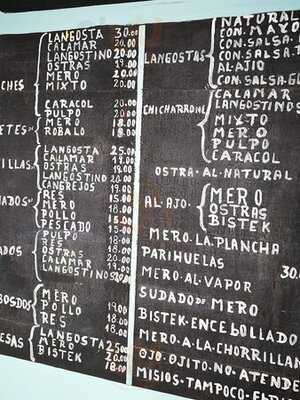 LANGOSTA 30.00
CALAMAR 20.00
LANGOSTINO 20.00
CHES OSTRAS 19.00
MERO 20.00
MIXTO 20.00
CARACOL 20.00
PULPO 20.00
ETES DE MERO 18.00
ROBALO 18.00
LANGOSTA 25.00
CALAMAR 19.00
ILLAS OSTRAS 18.00
LANGOSTINO 20.00
CANGREJOS 19.00
RES 15.00
MERO 18.00
POLLO 15.00
PESCADO 15.00
PULPO
RES
ADOS OSTRAS
CALAMAR
LANGOSTINOS 20.00
MERO
BOSDOS POLLO 19.00
RES 18.00
LANGOSTA 25.00
ESAS MERO 20.00
BISTEK 18.00
NATURAL
CON. MAYO
CON. SALSA
LANGOSTAS CON. SALSA
AL AJIO
CON. SALSA. G
CALAMAR
LANGOSTINOS
CHICHARRONE MIXTO
MERO
PULPO
CARACOL
OSTRA. AL. NATURAL
MERO
AL. AJO. OSTRAS
BISTEK
MERO. LA. PLANCHA
PARIHUELAS 30.
MERO. AL. VAPOR
SUDADO DE MERO
BISTEK. ENCEBOLLADO
MERO. A. LA. CHORRILLAN
OJO. OJITO. NO. ATENDE
MISIOS. TAMPOCO.